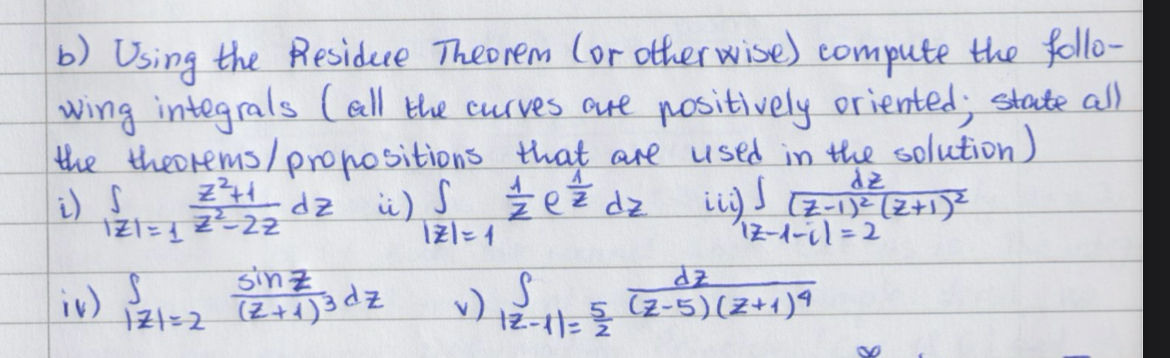 b) Using the Residue Theorem (or otherwise) compute the follo-
wing integrals (all the curves are positively oriented; state all
the theorems/propositions that are used in the solution)
i) ∫_{|z|=1} (z²+1)/(z²-2z) dz ii) ∫_{|z|=1} 1/z e^{1/z} dz iii) ∫_{|z-1-i|=2} dz/((z-1)²(z+1)²)
iv) ∫_{|z|=2} sin z/(z+1)³ dz v) ∫_{|z-1|=5/2} dz/((z-5)(z+1)⁴)